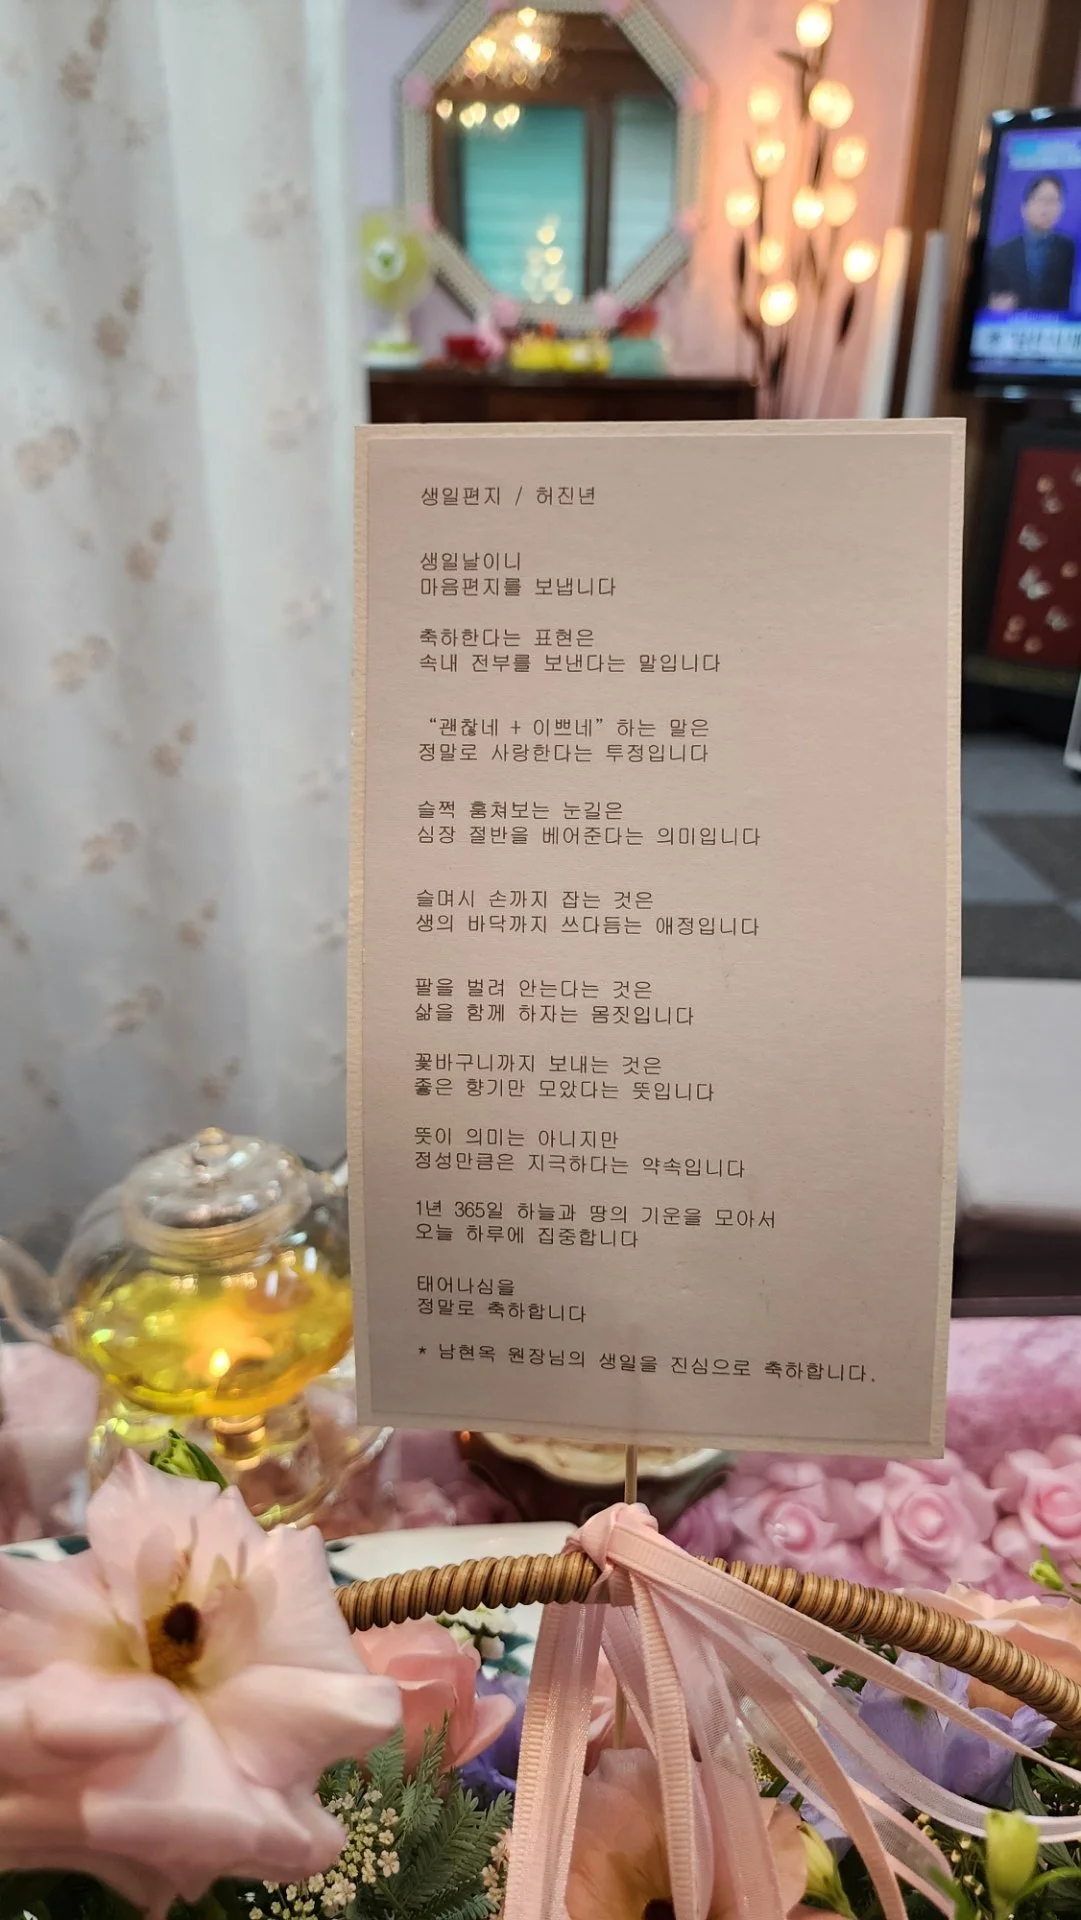 생일편지 / 허진년
생일날이니
마음편지를 보냅니다
축하한다는 표현은
속내 전부를 보낸다는 말입니다
“괜찮네 + 이쁘네” 하는 말은
정말로 사랑한다는 투정입니다
슬쩍 훔쳐보는 눈길은
심장 절반을 베어준다는 의미입니다
슬며시 손까지 잡는 것은
생의 바닥까지 쓰다듬는 애정입니다
팔을 벌려 안는다는 것은
삶을 함께 하자는 몸짓입니다
꽃바구니까지 보내는 것은
좋은 향기만 모았다는 뜻입니다
뜻이 의미는 아니지만
정성만큼은 지극하다는 약속입니다
1년 365일 하늘과 땅의 기운을 모아서
오늘 하루에 집중합니다
태어나심을
정말로 축하합니다
* 남현옥 원장님의 생일을 진심으로 축하합니다.